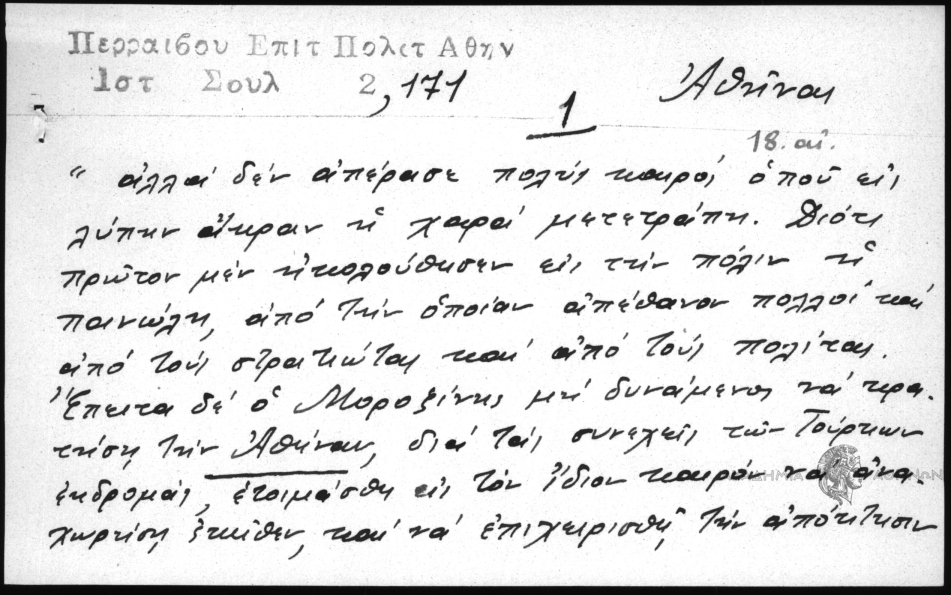 Περραιβου Επιτ Πολιτ Αθην
Ιστ Σουλ 2,171
Ἀθῆναι
1
18. αἰ.
"ἀλλά δέν ἀπέρασε πολύς καιρός ὁποῦ εἰς
λύπην ἄκραν ἡ χαρά μετετράπη. Διότι
πρῶτον μέν ἠκολούθησεν εἰς τήν πόλιν ἡ
πανώλη, ἀπό τήν ὁποίαν ἀπέθανον πολλοί καί
ἀπό τούς στρατιώτας καί ἀπό τούς πολίτας.
Ἔπειτα δέ ὁ Μοροζίνης μή δυνάμενος νά κρα-
τήση τήν Ἀθήναν, διά τάς συνεχεῖς τῶν Τούρκων
ἐκδρομάς, ἐτοιμάσθη εἰς τόν ἴδιον καιρόν νά ἀνα-
χωρήση ἐκεῖθεν, καί νά ἐπιχειρισθῇ τήν ἀπόκτησιν
ΑΚΑΔΗΜΙΑ ΑΘΗΝΩΝ